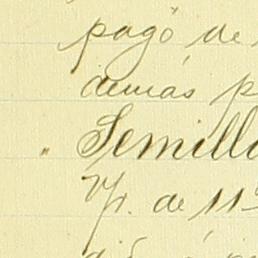 pagó de
demás p
" Semill
Vr. de 11